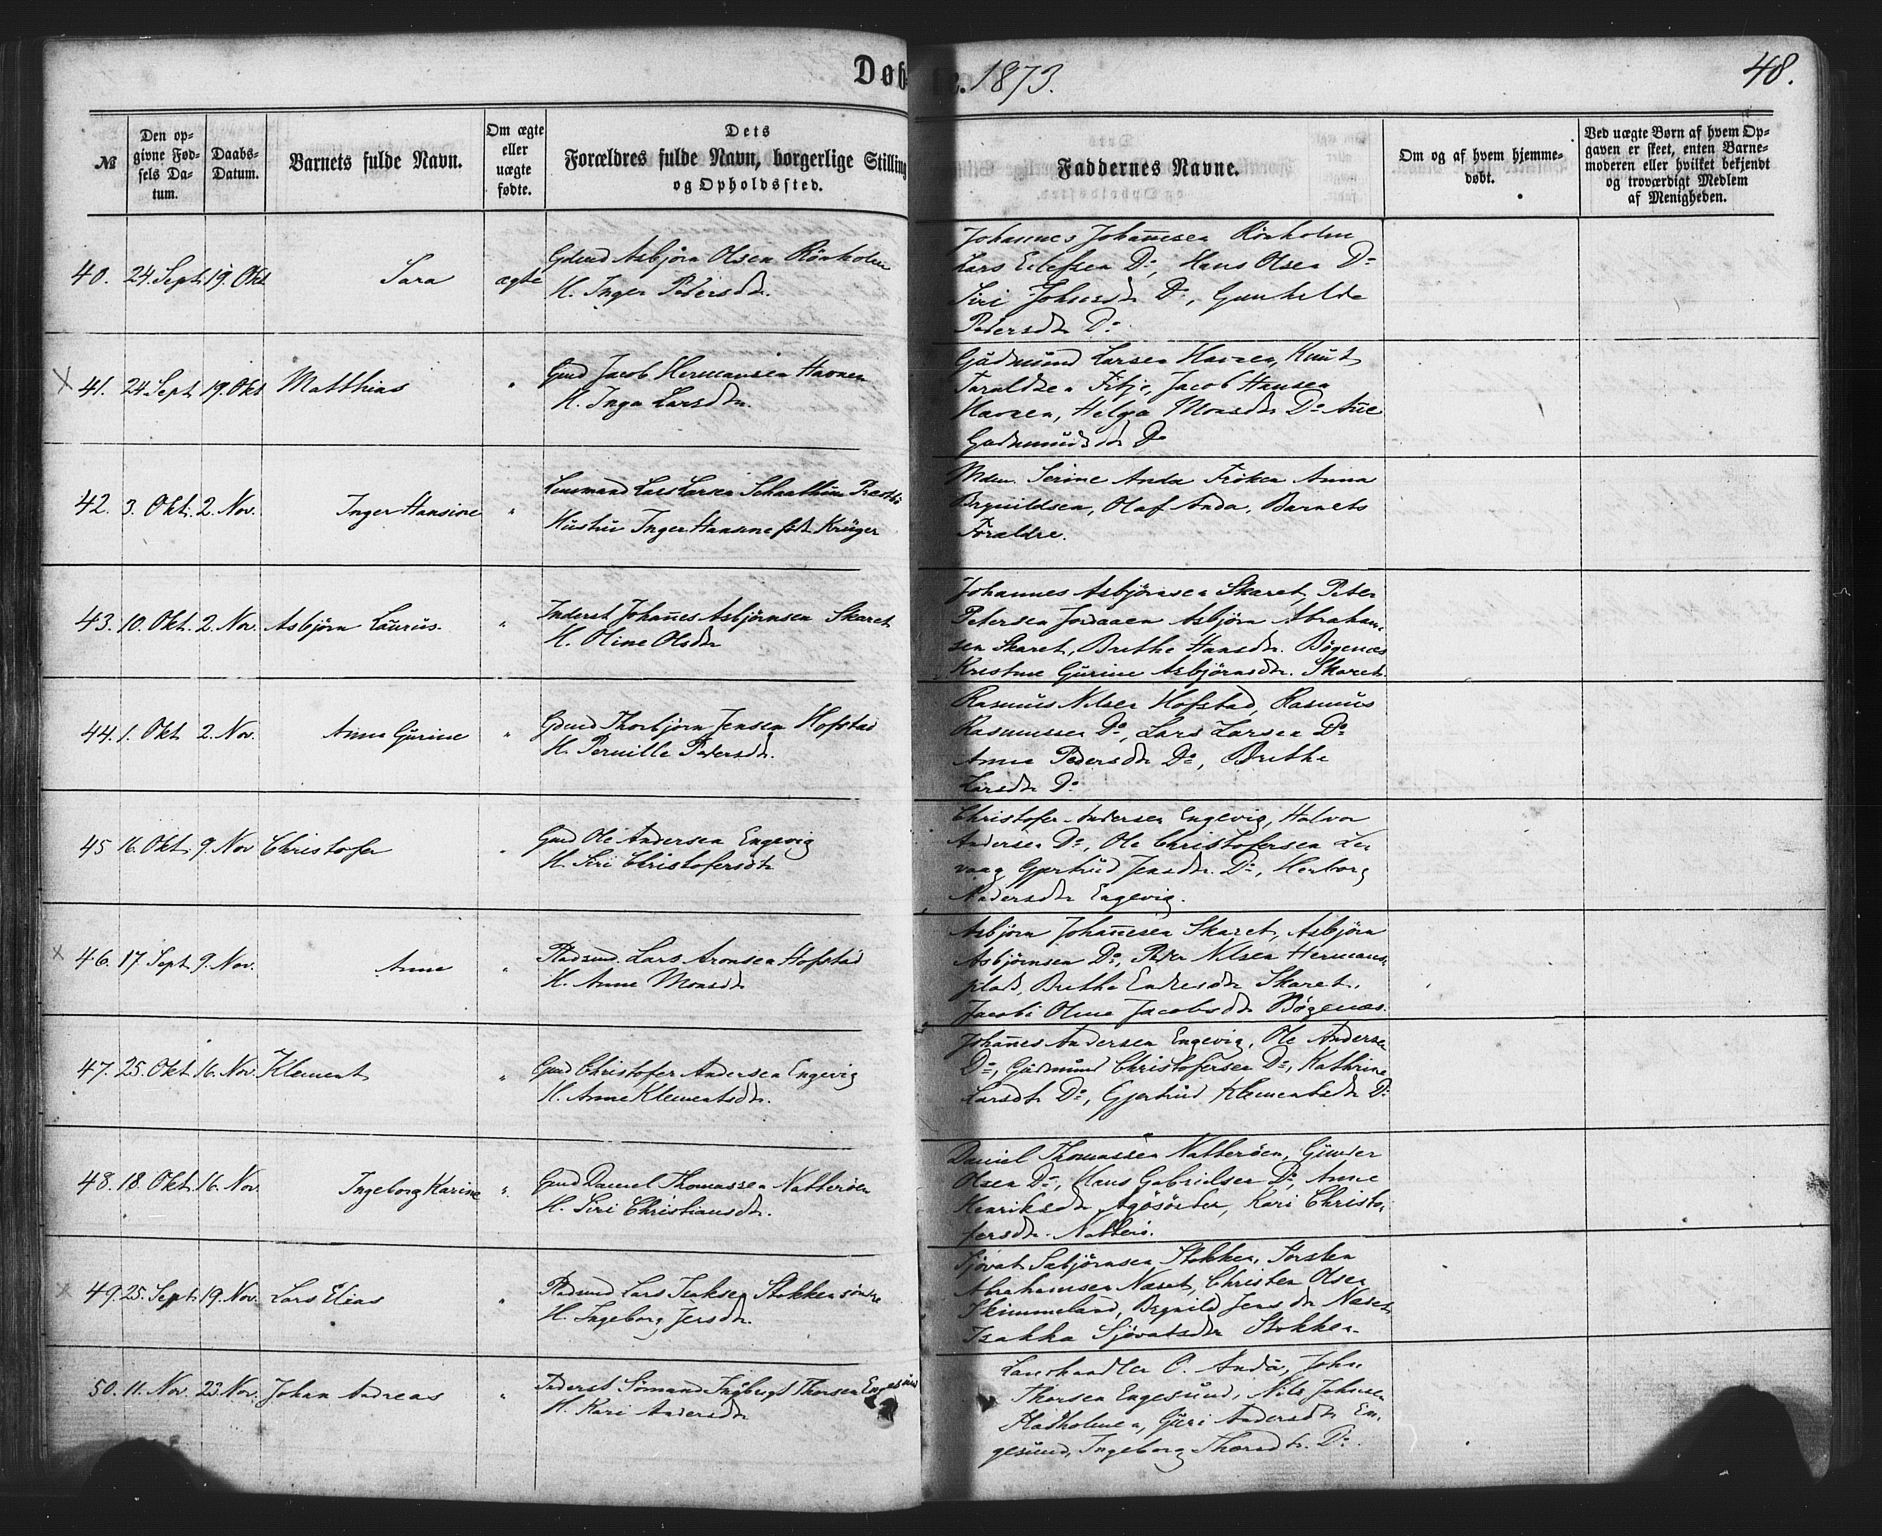 Døb
e. 1873.
48.
№
Den op-
givne Fød-
sels Da-
tum.
Daabs-
Datum.
Barnets fulde Navn.
Om ægte
eller
uægte
fødte.
Dets
Forældres fulde Navn, borgerlige Stilling
og Opholdssted.
Faddernes Navne.
Om og af hvem hjemme-
døbt.
Ved uægte Børn af hvem Op-
gaven er skeet, enten Barne-
moderen eller hvilket bekjendt
og troværdigt Medlem
af Menigheden.
40. 24. Sept. 19. Okt Sara ægte
Gdmd Asbjörn Olsen Rönholm
H. Inger Pedersdtr.
Johannes Johannesen Rönholm
Lars Eilefsen Do, Hans Olsen Do
Siri Johnsdtr Do, Gunhilde
Pedersdtr Do
41. 24 Sept. 19. Okt Matthias "
Gmd Jacob Hermansen Havnen
H. Inga Larsdtr.
Gudmund Larsen Havnen, Knut
Taraldsen Fitje, Jacob Hansen
Havnen, Helga Monsdtr Do Ane
Gudmundsdtr Do
42. 3. Okt. 2. Nov. Inger Hansine "
Lensmand Lars Larsen Schaathun
Hustru Inger Hansine født Krüger
Mdm. Serine Anda Fröken Anna
Brynildsen, Olaf Anda, Barnets
Forældre.
43. 10. Okt. 2. Nov. Asbjörn Laurus. "
Inderst Johanes Asbjörnsen Skaret
H. Oline Olsdtr
Johannes Asbjörnsen Skaret, Peter
Petersen Asbjörn Abraham-
sen Skaret, Brethe Hansdtr. Bögenæs
Kristine Gurine Asbjörnsdtr. Skaret.
44. 1. Okt 2. Nov. Anna Gurine "
Gdmd Thorbjörn Jensen Hofstad
H. Pernille Pedersdtr.
Rasmus Nilsen Hofstad, Rasmus
Rasmussen Do, Lars Larsen Do
Anne Pedersdtr Do, Brethe
Larsdtr Do
45 16. Okt. 9. Nov Christofer "
Gmd Ole Andersen Engevig
H. Siri Christofersdtr
Christofer Andersen Engevig, Halvor
Andersen Do, Ole Christofersen Ler
vaag Gjertrud Jensdtr. Do, Herborg
Andersdtr Engevig.
46. 17 Sept. 9. Nov. Anne "
Pladsmd. Lars Aronsen Hofstad
H. Anne Monsdtr
Asbjörn Johannesen Skaret, Asbjörn
Asbjörnsen Do, Peder Nilsen Hermans-
plads, Brethe Endresdtr Skaret,
Jacobi Oline Jacobsdtr Bögenæs.
47. 25. Okt 16. Nov. Klement "
Gmd Christofer Andersen Engevig
H. Anne Klementsdtr.
Johanes Andersen Engevig, Ole Andersen
Do, Gudmund Christofersen Do, Kathrine
Larsdtr Do, Gjertrud Klementsdtr Do
48. 18. Okt. 16. Nov. Ingeborg Karine "
Gmd Daniel Thomassen Natteröen
H. Siri Christiansdtr.
Daniel Thomassen Natteröen, Gunder
Olsen Do, Hans Gabrielsen Do, Anne
Henriksdtr Kari Christo-
fersdtr. Natterö.
49. 25. Sept. 19. Nov. Lars Elias "
Pladsmd Lars Isaksen Stokken söndre
H. Ingeborg Jensdtr.
Sjövat Sæbjörnsen Stokken, Torsten
Abrahamsen Næset, Christen Olsen
Skimmeland, Brynild Jensdtr Næset,
Isakka Sjövatsdtr Stokken.
50. 11. Nov. 23. Nov. Johan Andreas "
Inderst Sömand Ingbrigt Thorsen Engesund
H. Kari Andersdtr
Landhandler O. Anda, John
Thorsen Engesund, Nils Johnsen
Fladholmen, Guri Andersdtr En-
gesund, Ingeborg Thorsdtr. Do.